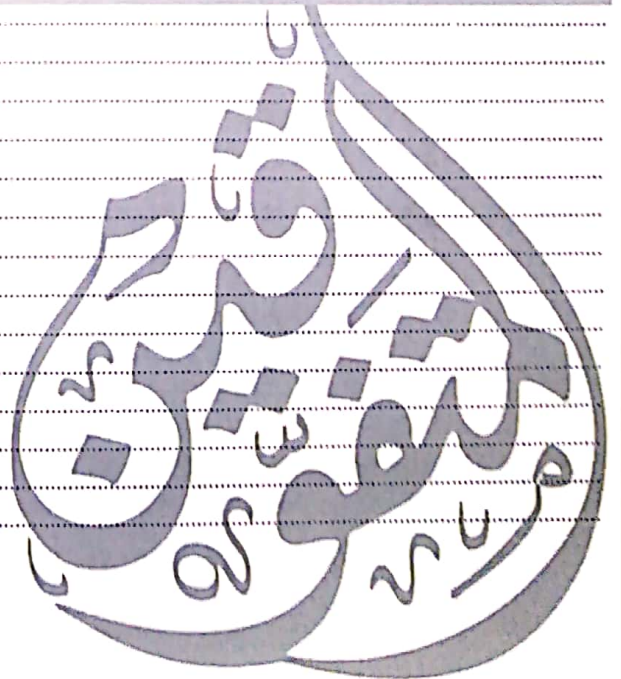 المتفوّقين